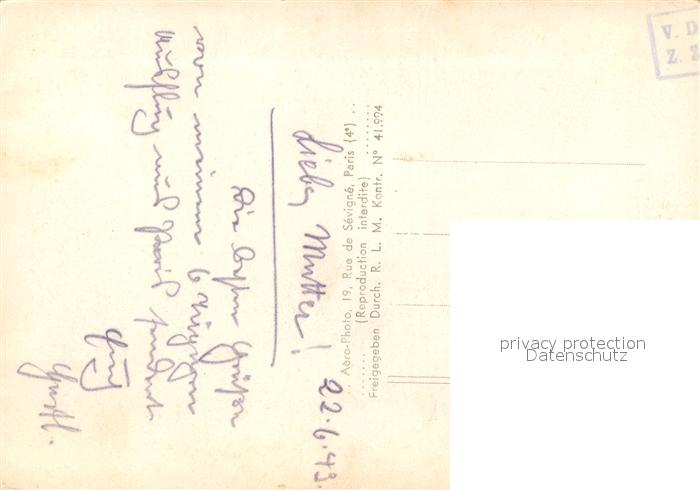 Liebe Mutter!
22.6.43.
Die besten Grüße
von meinem 6 tägigen
Ausflug nach Paris sendet
Aéro-Photo, 19, Rue de Sévigné, Paris (4e)
(Reproduction interdite)
Freigegeben Durch. R. L. M. Kontr. N° 41.924
V. D
Z. Z
privacy protection
Datenschutz